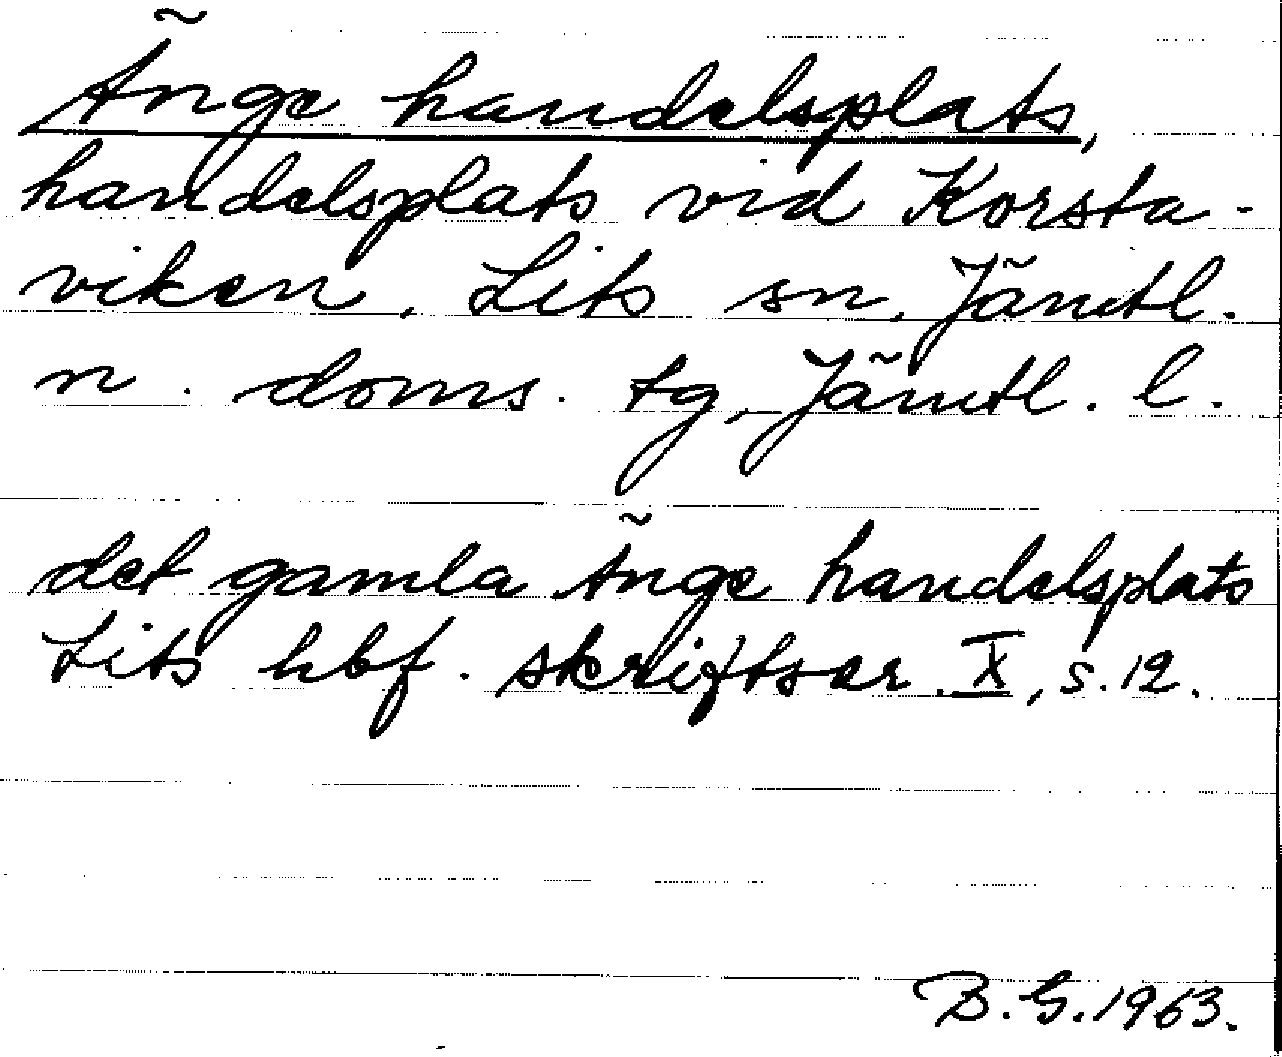 Änge handelsplats,
handelsplats vid Korsta-
viken, Lits sn, Jämtl.
n. doms. tg, Jämtl. l.
det gamla Änge handelsplats
Lits hbf. skriftser. X, s. 12.
B. G. 1963.